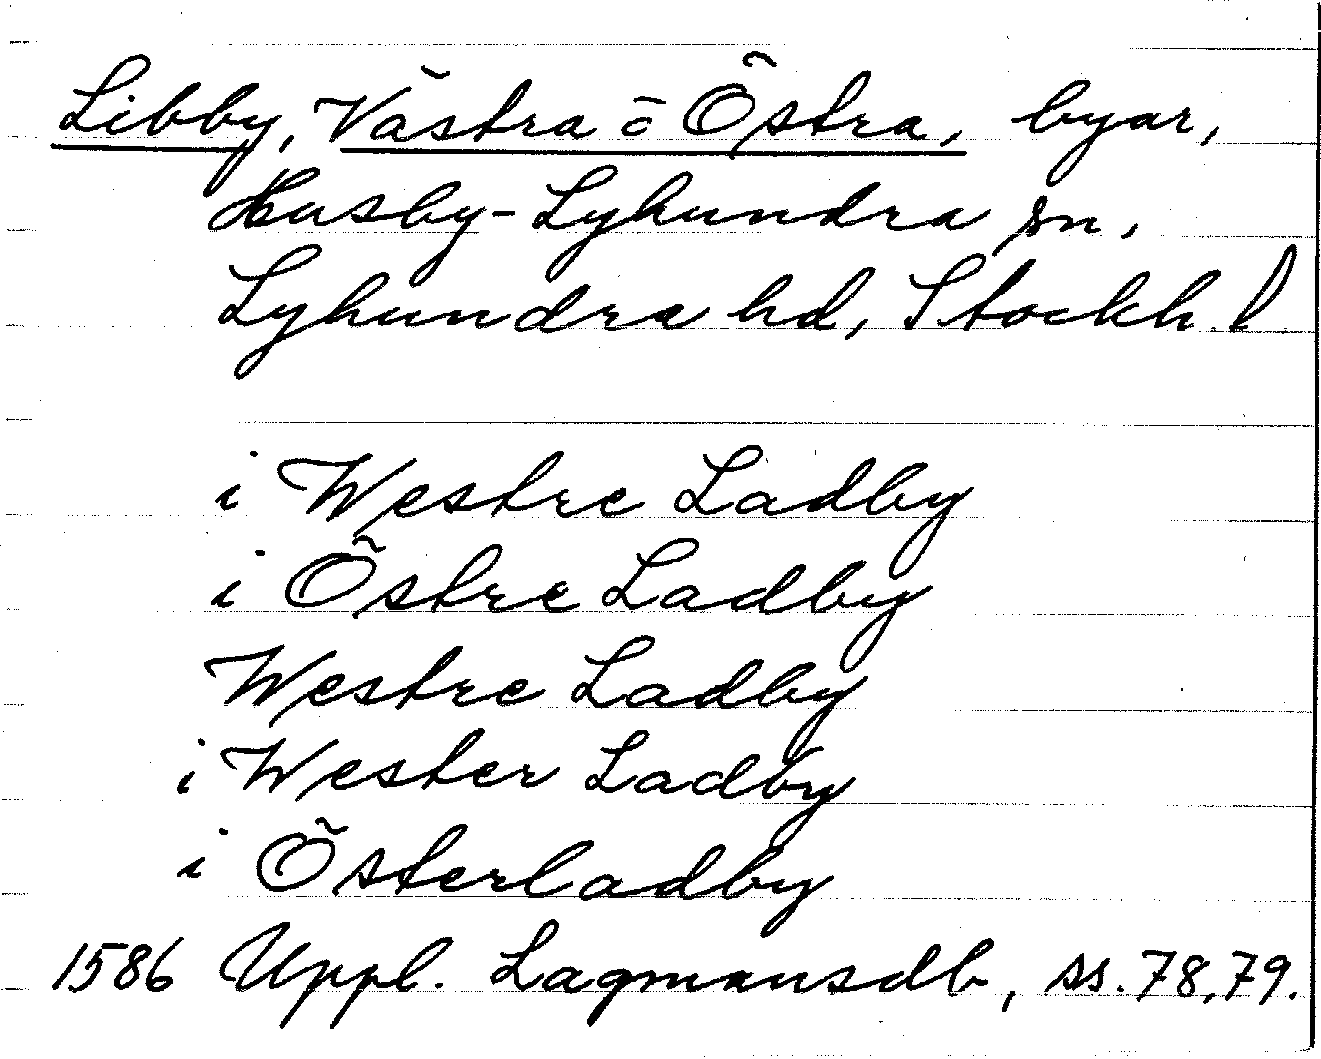 Libby, Västra o Östra, byar,
Husby-Lyhundra sn,
Lyhundra hd, Stockh. l
i Westre Ladby
i Östre Ladby
Westre Ladby
i Wester Ladby
i Österladby
1586 Uppl. Lagmansdb, ss. 78, 79.